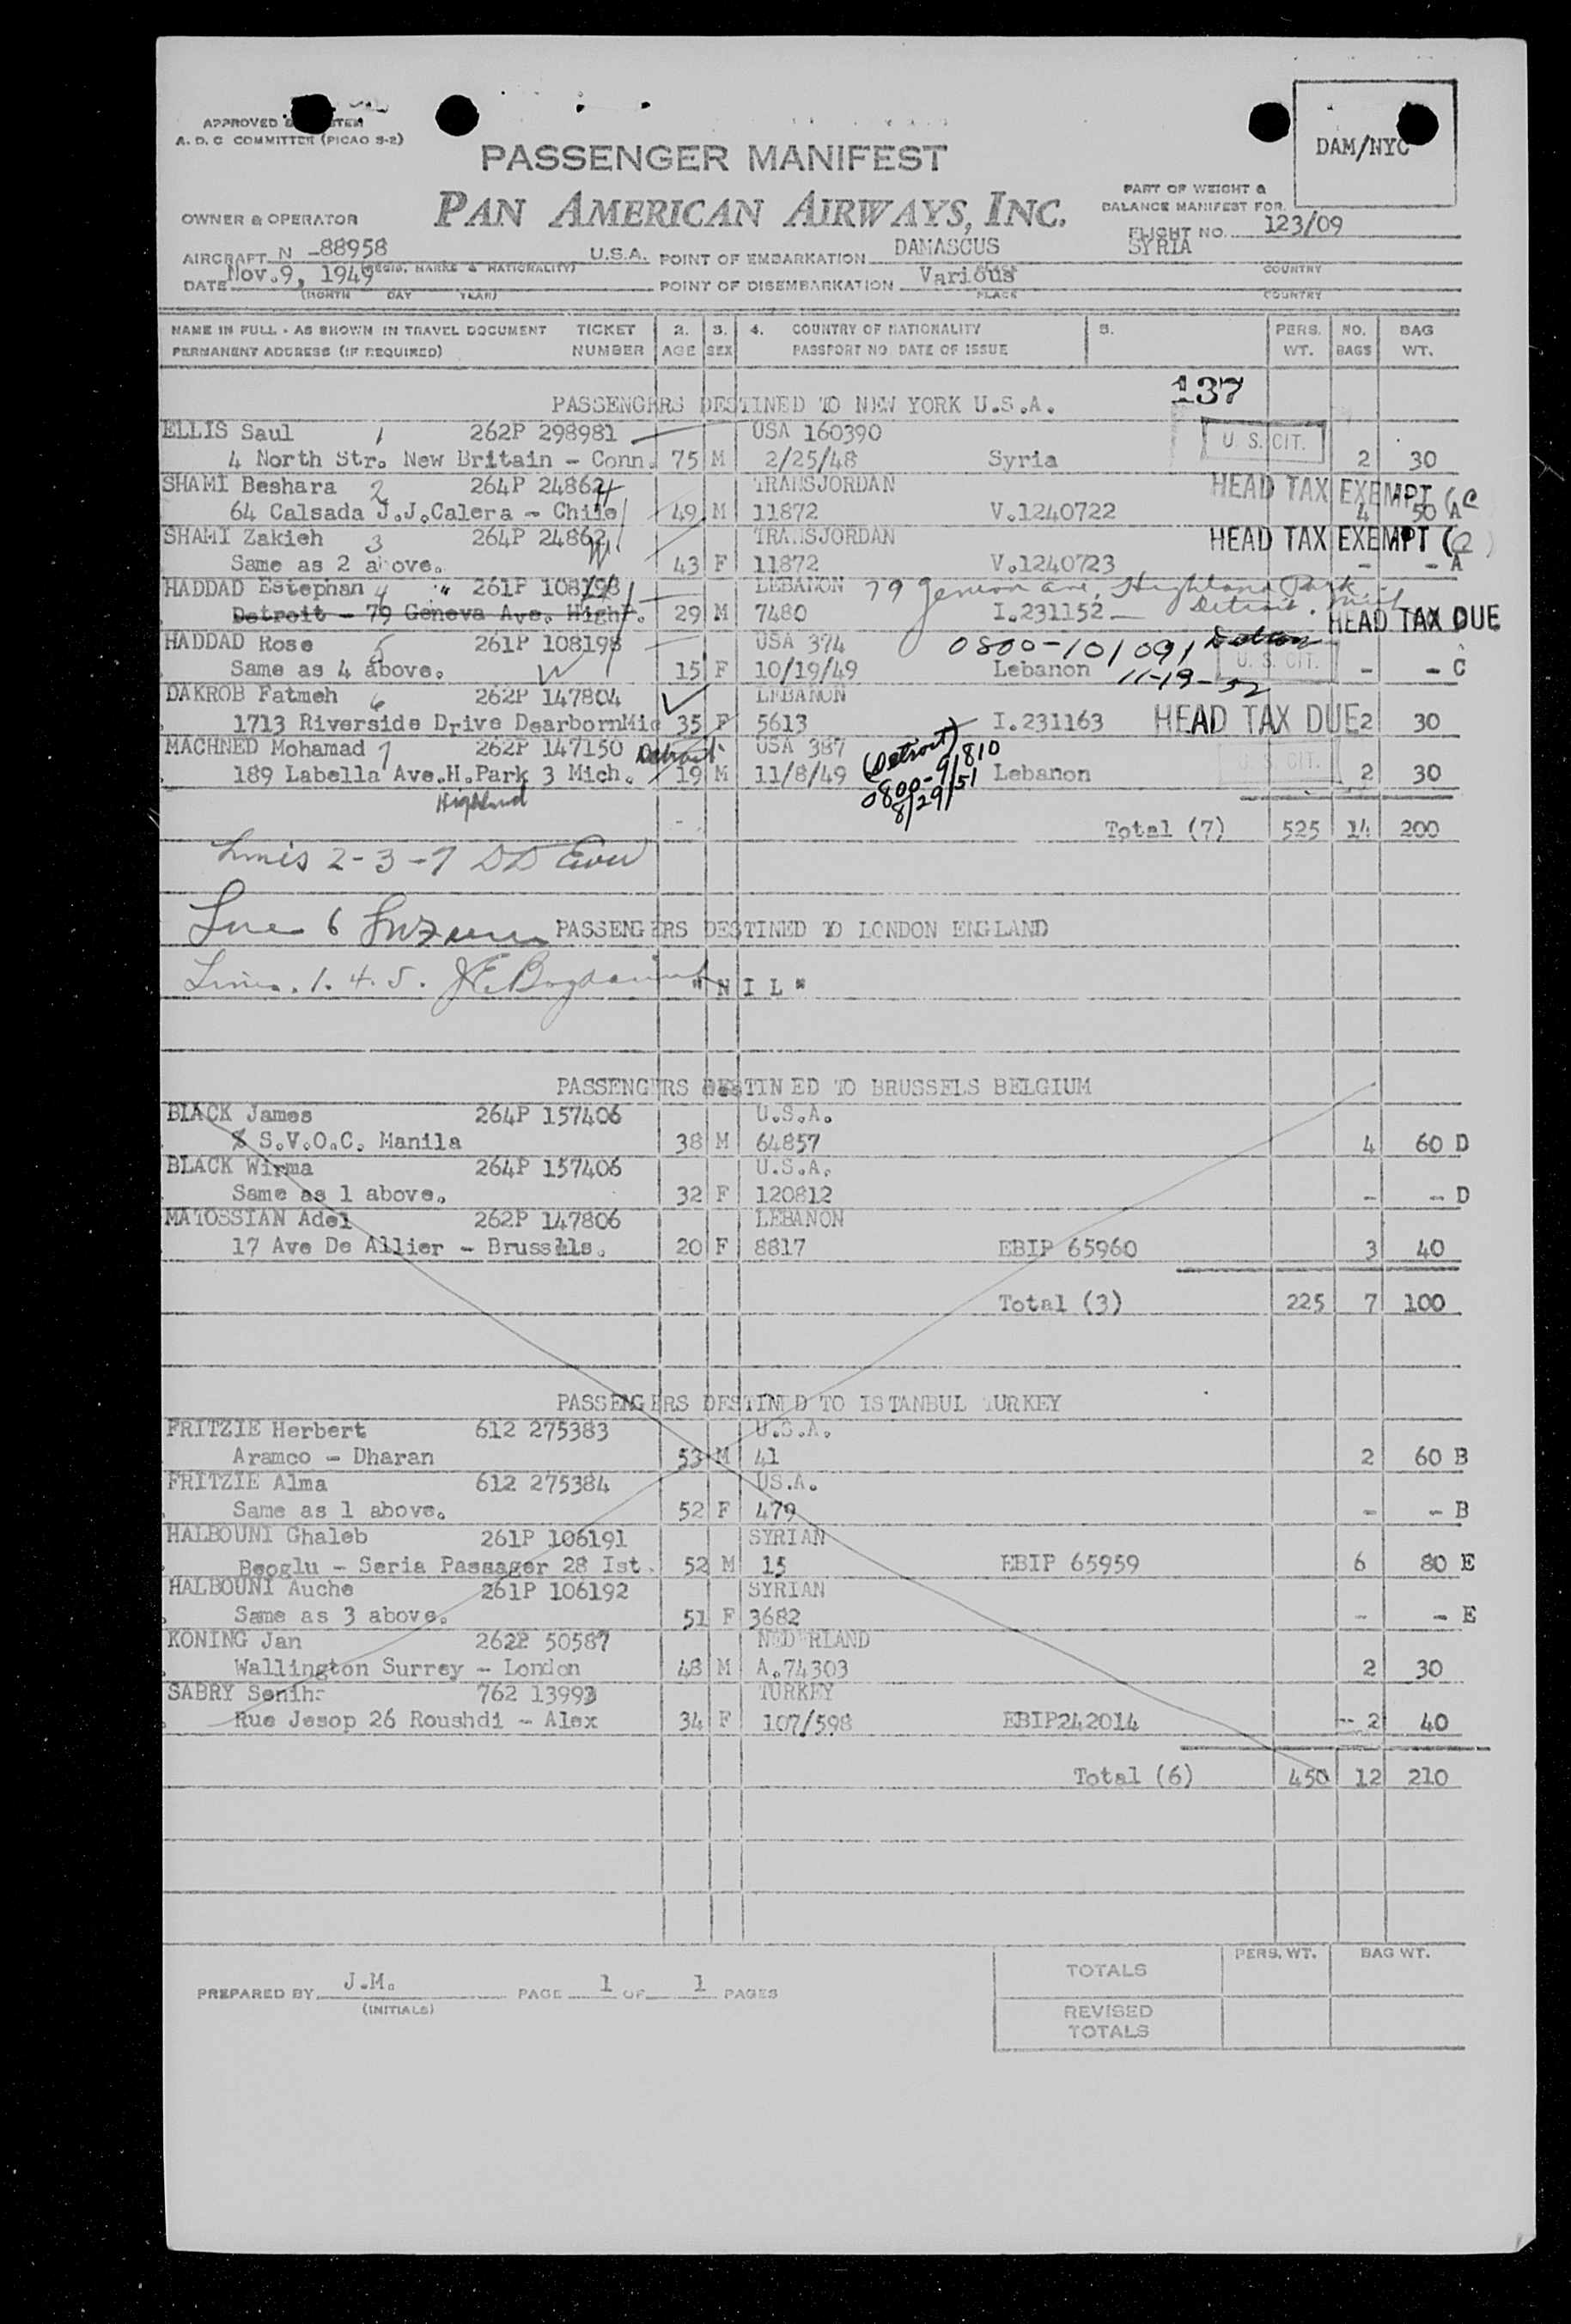 DAM/NYC
APPROVED
A. D. C COMMITTEE (PICAO S-2)
PASSENGER MANIFEST
PART OF WEIGHT &
BALANCE MANIFEST FOR
OWNER & OPERATOR
PAN AMERICAN AIRWAYS, INC.
FLIGHT NO. 123/09
AIRCRAFT N -88958 U.S.A. POINT OF EMBARKATION DAMASCUS SYRIA
(REGIS. MARKS & NATIONALITY) PLACE COUNTRY
DATE Nov.9, 1949 POINT OF DISEMBARKATION Various
(MONTH DAY YEAR) PLACE COUNTRY
NAME IN FULL - AS SHOWN IN TRAVEL DOCUMENT TICKET 2. 3. 4. COUNTRY OF NATIONALITY 5. PERS. NO. BAG
PERMANENT ADDRESS (IF REQUIRED) NUMBER AGE SEX PASSPORT NO DATE OF ISSUE WT. BAGS WT.
137
PASSENGERS DESTINED TO NEW YORK U.S.A.
ELLIS Saul 1 262P 298981 USA 160390 U. S. CIT.
4 North Str. New Britain - Conn. 75 M 2/25/48 Syria 2 30
SHAMI Beshara 2 264P 24862 TRANSJORDAN HEAD TAX EXEMPT (C
64 Calsada J.J.Calera - Chile 49 M 11872 V.1240722 4 50 A
SHAMI Zakieh 3 264P 24862 TRANSJORDAN HEAD TAX EXEMPT (C)
Same as 2 above. 43 F 11872 V.1240723 - - A
HADDAD Estephan 4 " 261P 108198 LEBANON 79 Geneva Ave, Highland Park
Detroit - 79 Geneva Ave. High. 29 M 7480 I.231152 Detroit, Mich HEAD TAX DUE
HADDAD Rose 5 261P 108198 USA 374 0800-101091
Same as 4 above. 15 F 10/19/49 Lebanon 11-19-52 U. S. CIT. - - C
DAKROB Fatmeh 6 262P 147804 LEBANON
1713 Riverside Drive DearbornMic 35 F 5613 I.231163 HEAD TAX DUE 2 30
MACHNED Mohamad 7 262P 147150 Detroit USA 387 (Detroit) U. S. CIT.
189 Labella Ave.H.Park 3 Mich. 19 M 11/8/49 0800-91810 Lebanon 2 30
Highland 8/29/51
Total (7) 525 14 200
Lines 2-3-7
Line 6
PASSENGERS DESTINED TO LONDON ENGLAND
Lines. 1. 4. 5.
"N I L"
PASSENGERS DESTINED TO BRUSSELS BELGIUM
BLACK James 264P 157406 U.S.A.
% S.V.O.C. Manila 38 M 64857 4 60 D
BLACK Wirma 264P 157406 U.S.A.
Same as 1 above. 32 F 120812 - - D
MATOSSIAN Adel 262P 147806 LEBANON
17 Ave De Allier - Brussels. 20 F 8817 EBIP 65960 3 40
Total (3) 225 7 100
PASSENGERS DESTINED TO ISTANBUL TURKEY
FRITZIE Herbert 612 275383 U.S.A.
Aramco - Dharan 53 M 41 2 60 B
FRITZIE Alma 612 275384 US.A.
Same as 1 above. 52 F 479 - - B
HALBOUNI Ghaleb 261P 106191 SYRIAN
Beoglu - Seria Passager 28 Ist. 52 M 15 EBIP 65959 6 80 E
HALBOUNI Auche 261P 106192 SYRIAN
Same as 3 above. 51 F 3682 - - E
KONING Jan 262P 50587 NEDERLAND
Wallington Surrey - London 48 M A.74303 2 30
SABRY Seniha 762 13993 TURKEY
Rue Jesop 26 Roushdi - Alex 34 F 107/598 EBIP242014 - 2 40
Total (6) 450 12 210
PERS. WT. BAG WT.
TOTALS
PREPARED BY J.M. PAGE 1 OF 1 PAGES
(INITIALS)
REVISED
TOTALS